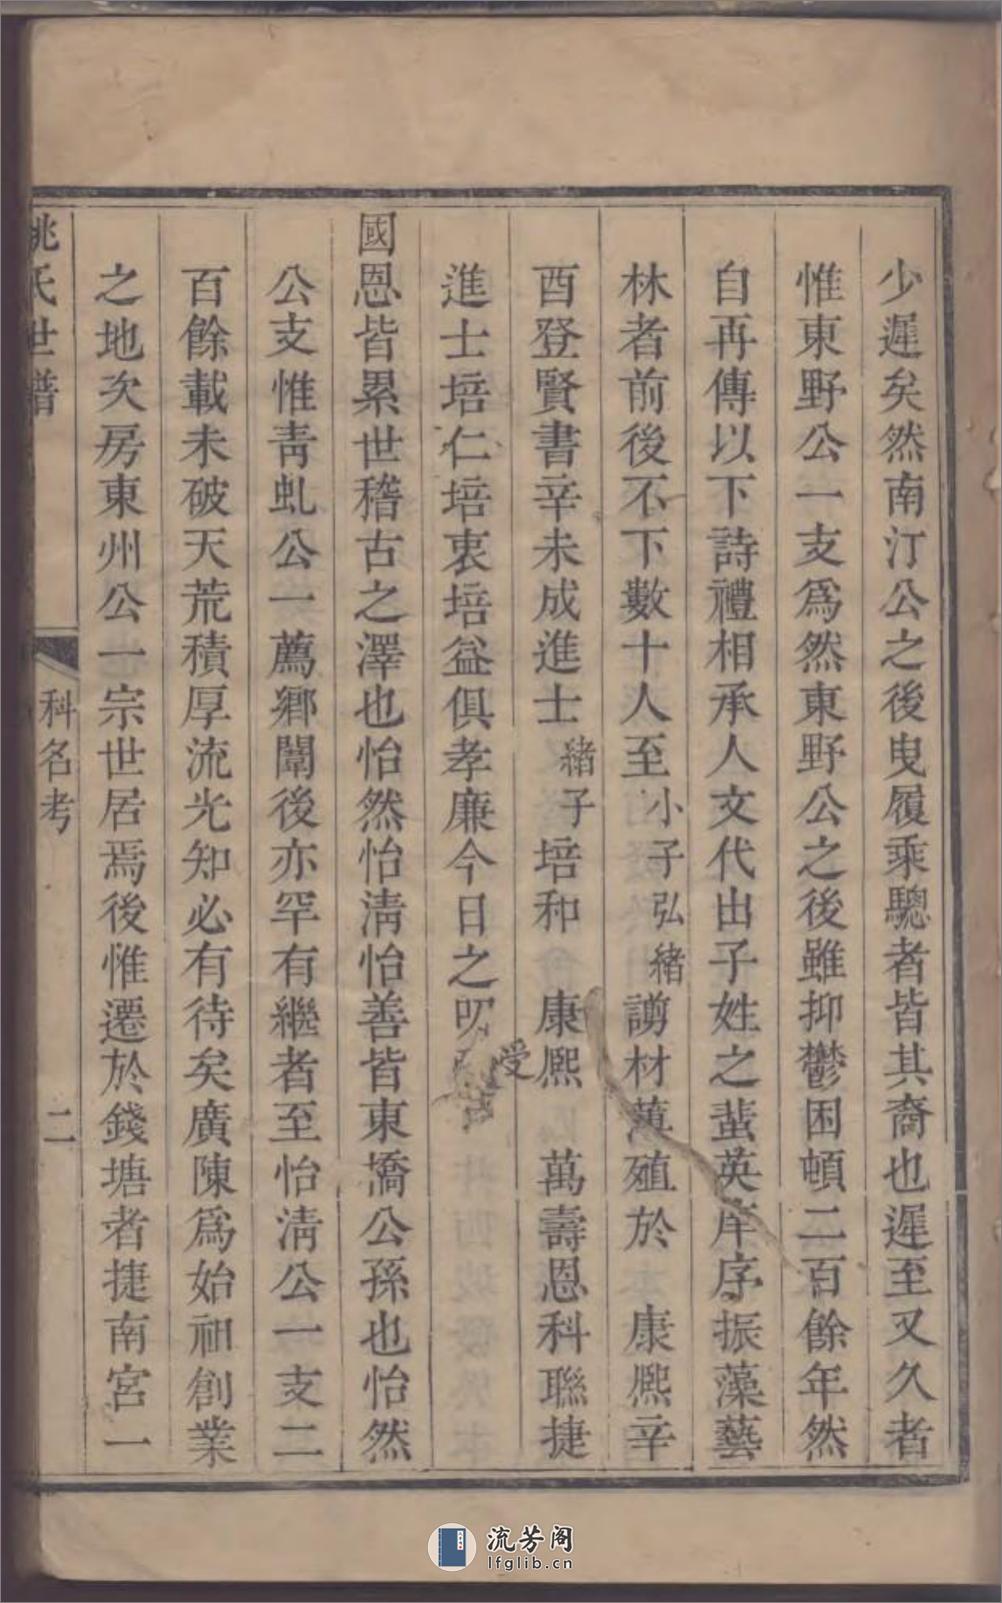 少遲矣然南汀公之後曳履乘驄者皆其裔也遲至又久者
惟東野公一支爲然東野公之後雖抑鬱困頓二百餘年然
自再傳以下詩禮相承人文代出子姓之蜚英庠序振藻藝
林者前後不下數十人至小子弘緒謭材濫殖於康熙辛
酉登賢書辛未成進士緒子培和康熙萬壽恩科聯捷
進士培仁培衷培益俱孝廉今日之叨受
國恩皆累世稽古之澤也怡然怡淸怡善皆東橋公孫也怡然
公支惟靑虬公一薦鄉闈後亦罕有繼者至怡淸公一支二
百餘載未破天荒積厚流光知必有待矣廣陳爲始祖創業
之地次房東州公一宗世居焉後惟遷於錢塘者捷南宮一
姚氏世譜
科名考
二
流芳阁
lfglib.cn